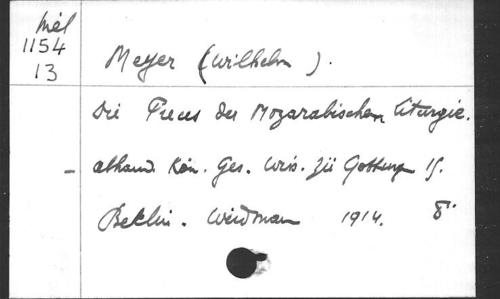 Mél
1154
13
Meyer (Wilhelm).
Die Preces der Mozarabischen Liturgie.
- abhand. Kön. Ges. Wiss. zü Gotting 15.
Berlin. Weidman 1914. 8°